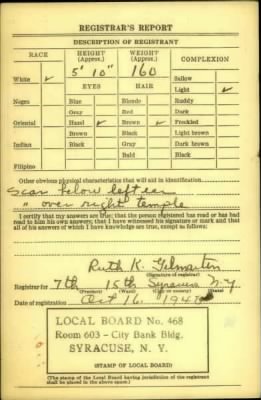 REGISTRAR'S REPORT
DESCRIPTION OF REGISTRANT
RACE HEIGHT (Approx.) WEIGHT (Approx.) COMPLEXION
5' 10" 160
White ✓ Sallow
EYES HAIR Light ✓
Negro Blue Blonde Ruddy
Gray Red Dark
Oriental Hazel ✓ Brown ✓ Freckled
Brown Black Light brown
Indian Black Gray Dark brown
Bald Black
Filipino
Other obvious physical characteristics that will aid in identification
Scar below left ear
" over right temple
I certify that my answers are true; that the person registered has read or has had
read to him his own answers; that I have witnessed his signature or mark and that
all of his answers of which I have knowledge are true, except as follows:
Ruth K. Gilmartin
(Signature of registrar)
Registrar for 7th 15th Syracuse N.Y.
(Precinct) (Ward) (City or county) (State)
Date of registration Oct 16. 1940
LOCAL BOARD No. 468
Room 603 - City Bank Bldg.
SYRACUSE, N. Y.
(STAMP OF LOCAL BOARD)
(The stamp of the Local Board having jurisdiction of the registrant
shall be placed in the above space.)